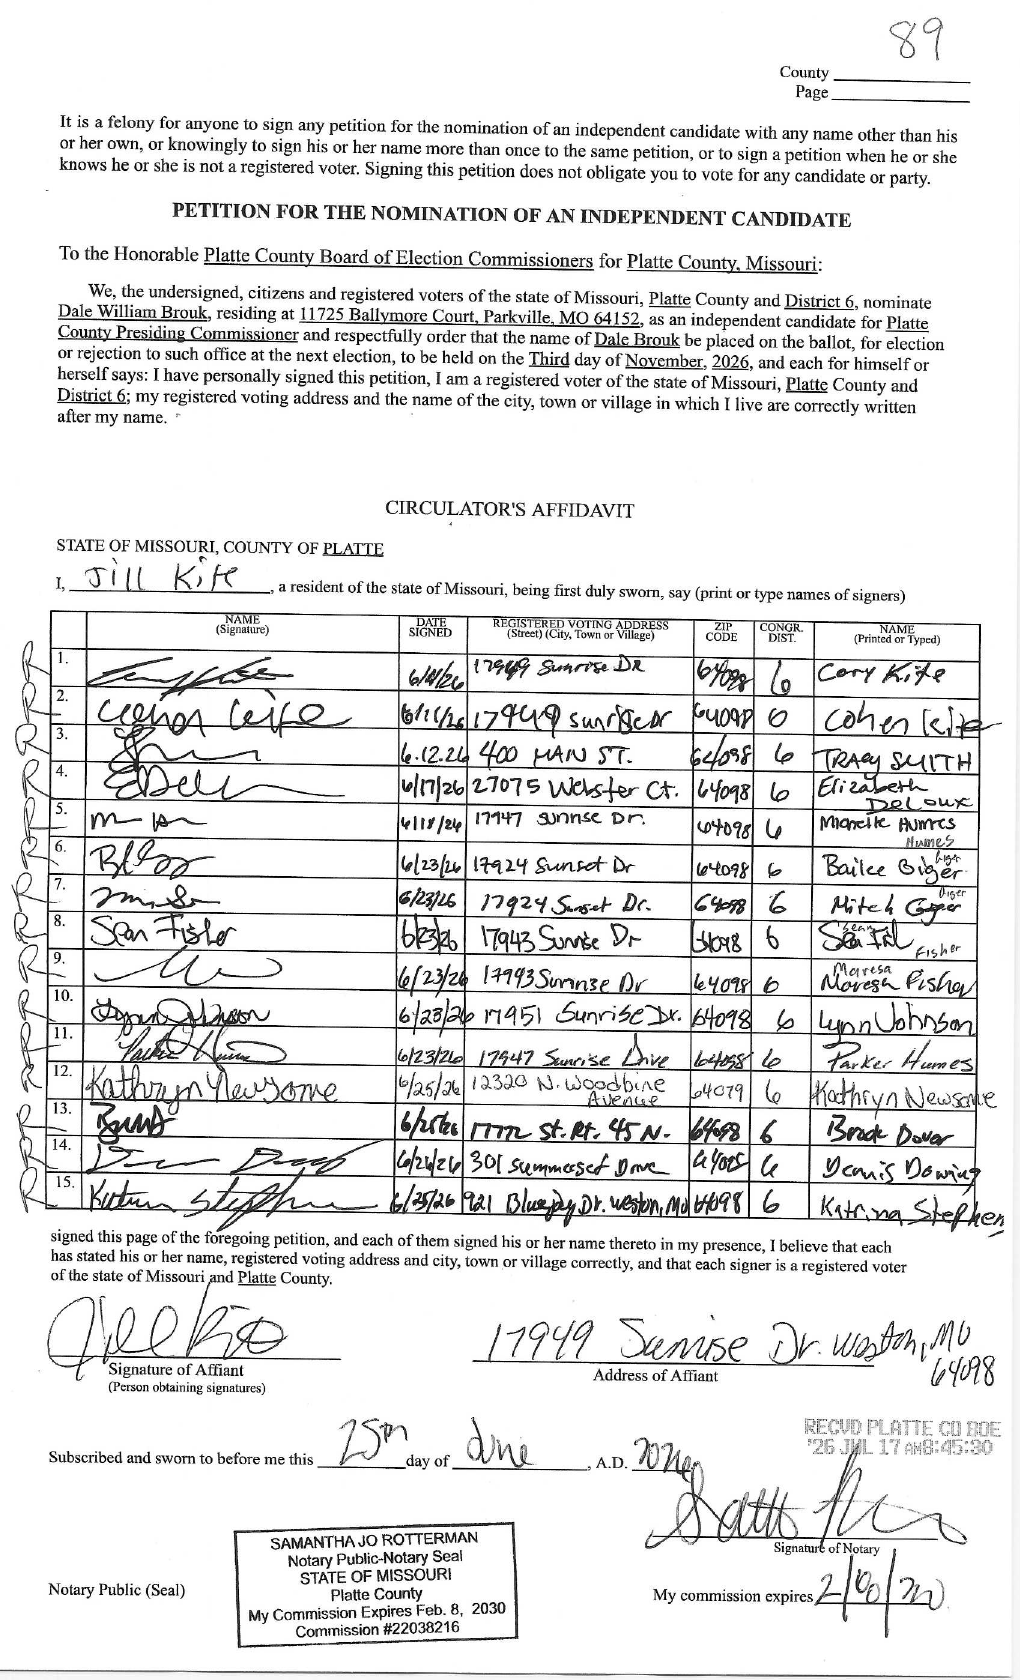 89
County
Page
It is a felony for anyone to sign any petition for the nomination of an independent candidate with any name other than his
or her own, or knowingly to sign his or her name more than once to the same petition, or to sign a petition when he or she
knows he or she is not a registered voter. Signing this petition does not obligate you to vote for any candidate or party.
PETITION FOR THE NOMINATION OF AN INDEPENDENT CANDIDATE
To the Honorable Platte County Board of Election Commissioners for Platte County, Missouri:
We, the undersigned, citizens and registered voters of the state of Missouri, Platte County and District 6, nominate
Dale William Brouk, residing at 11725 Ballymore Court, Parkville, MO 64152, as an independent candidate for Platte
County Presiding Commissioner and respectfully order that the name of Dale Brouk be placed on the ballot, for election
or rejection to such office at the next election, to be held on the Third day of November, 2026, and each for himself or
herself says: I have personally signed this petition, I am a registered voter of the state of Missouri, Platte County and
District 6; my registered voting address and the name of the city, town or village in which I live are correctly written
after my name.
CIRCULATOR'S AFFIDAVIT
STATE OF MISSOURI, COUNTY OF PLATTE
I, Jill Kite, a resident of the state of Missouri, being first duly sworn, say (print or type names of signers)
NAME (Signature) DATE SIGNED REGISTERED VOTING ADDRESS (Street) (City, Town or Village) ZIP CODE CONGR. DIST. NAME (Printed or Typed)
R 1. 17949 Sunrise DR 64098 6 Cory Kite
R 2. 6/11/26 17949 sunrise Dr 64098 6 Cohen Kite
R 3. 6.12.26 400 MAIN ST. 64098 6 TRACY SMITH
R 4. 6/17/26 27075 Webster Ct. 64098 6 Elizabeth DeLoux
R 5. 6/18/26 17947 Sunrise Dr. 64098 6 Michelle Humes Humes
R 6. 6/23/26 17924 Sunset Dr 64098 6 Bailee Giger Giger
R 7. 6/23/26 17924 Sunset Dr. 64098 6 Mitch Giger
R 8. Sean Fisher 6/23/26 17943 Sunrise Dr 64098 6 Sean Fisher
R 9. 6/23/26 17943 Sunrise Dr 64098 6 Maresa Maresa Fisher
R 10. Lynn Johnson 6/23/26 17951 Sunrise Dr. 64098 6 Lynn Johnson
R 11. Parker Humes 6/23/26 17947 Sunrise Drive 64098 6 Parker Humes
R 12. Kathryn Newsome 6/25/26 12320 N. Woodbine Avenue 64079 6 Kathryn Newsome
R 13. 6/25/26 17772 St. Rt. 45 N. 64098 6 Brock Dover
R 14. 6/26/26 301 Summerset Drive 6 Dennis Downing
R 15. Katrina Stephens 6/25/26 921 Bluejay Dr. Weston, MO 64098 6 Katrina Stephens
signed this page of the foregoing petition, and each of them signed his or her name thereto in my presence, I believe that each
has stated his or her name, registered voting address and city, town or village correctly, and that each signer is a registered voter
of the state of Missouri and Platte County.
Jill Kite 17949 Sunrise Dr. Weston, MO
64098
Signature of Affiant Address of Affiant
(Person obtaining signatures)
RECVD PLATTE CO BOE
'26 JUL 17 AM8:45:30
Subscribed and sworn to before me this 25th day of June, A.D. 2026
Signature of Notary
SAMANTHA JO ROTTERMAN
Notary Public-Notary Seal
STATE OF MISSOURI
Platte County
My Commission Expires Feb. 8, 2030
Commission #22038216
Notary Public (Seal)
My commission expires